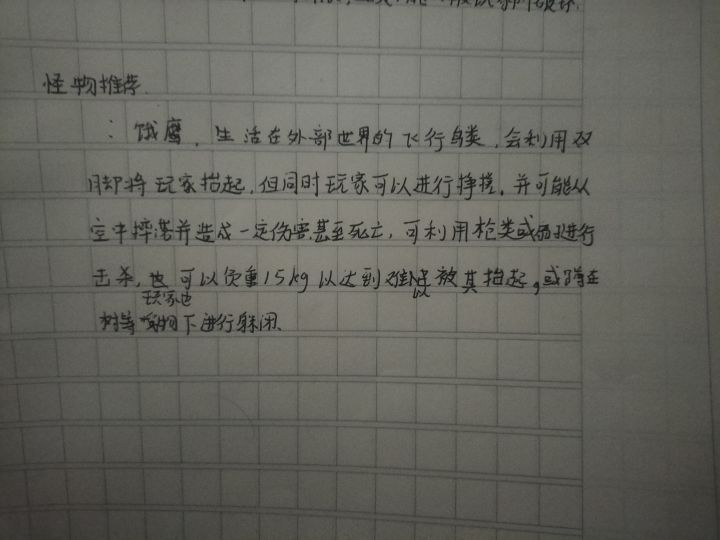 怪物推荐
：饿鹰，生活在外部世界的飞行鸟类，会利用双
脚将玩家抬起，但同时玩家可以进行挣扎，并可能从
空中摔落并造成一定伤害甚至死亡，可利用枪类或弓进行
击杀，也可以负重15kg以达到难以被其抬起，或蹲在
玩家也
树等植物下进行躲闭。